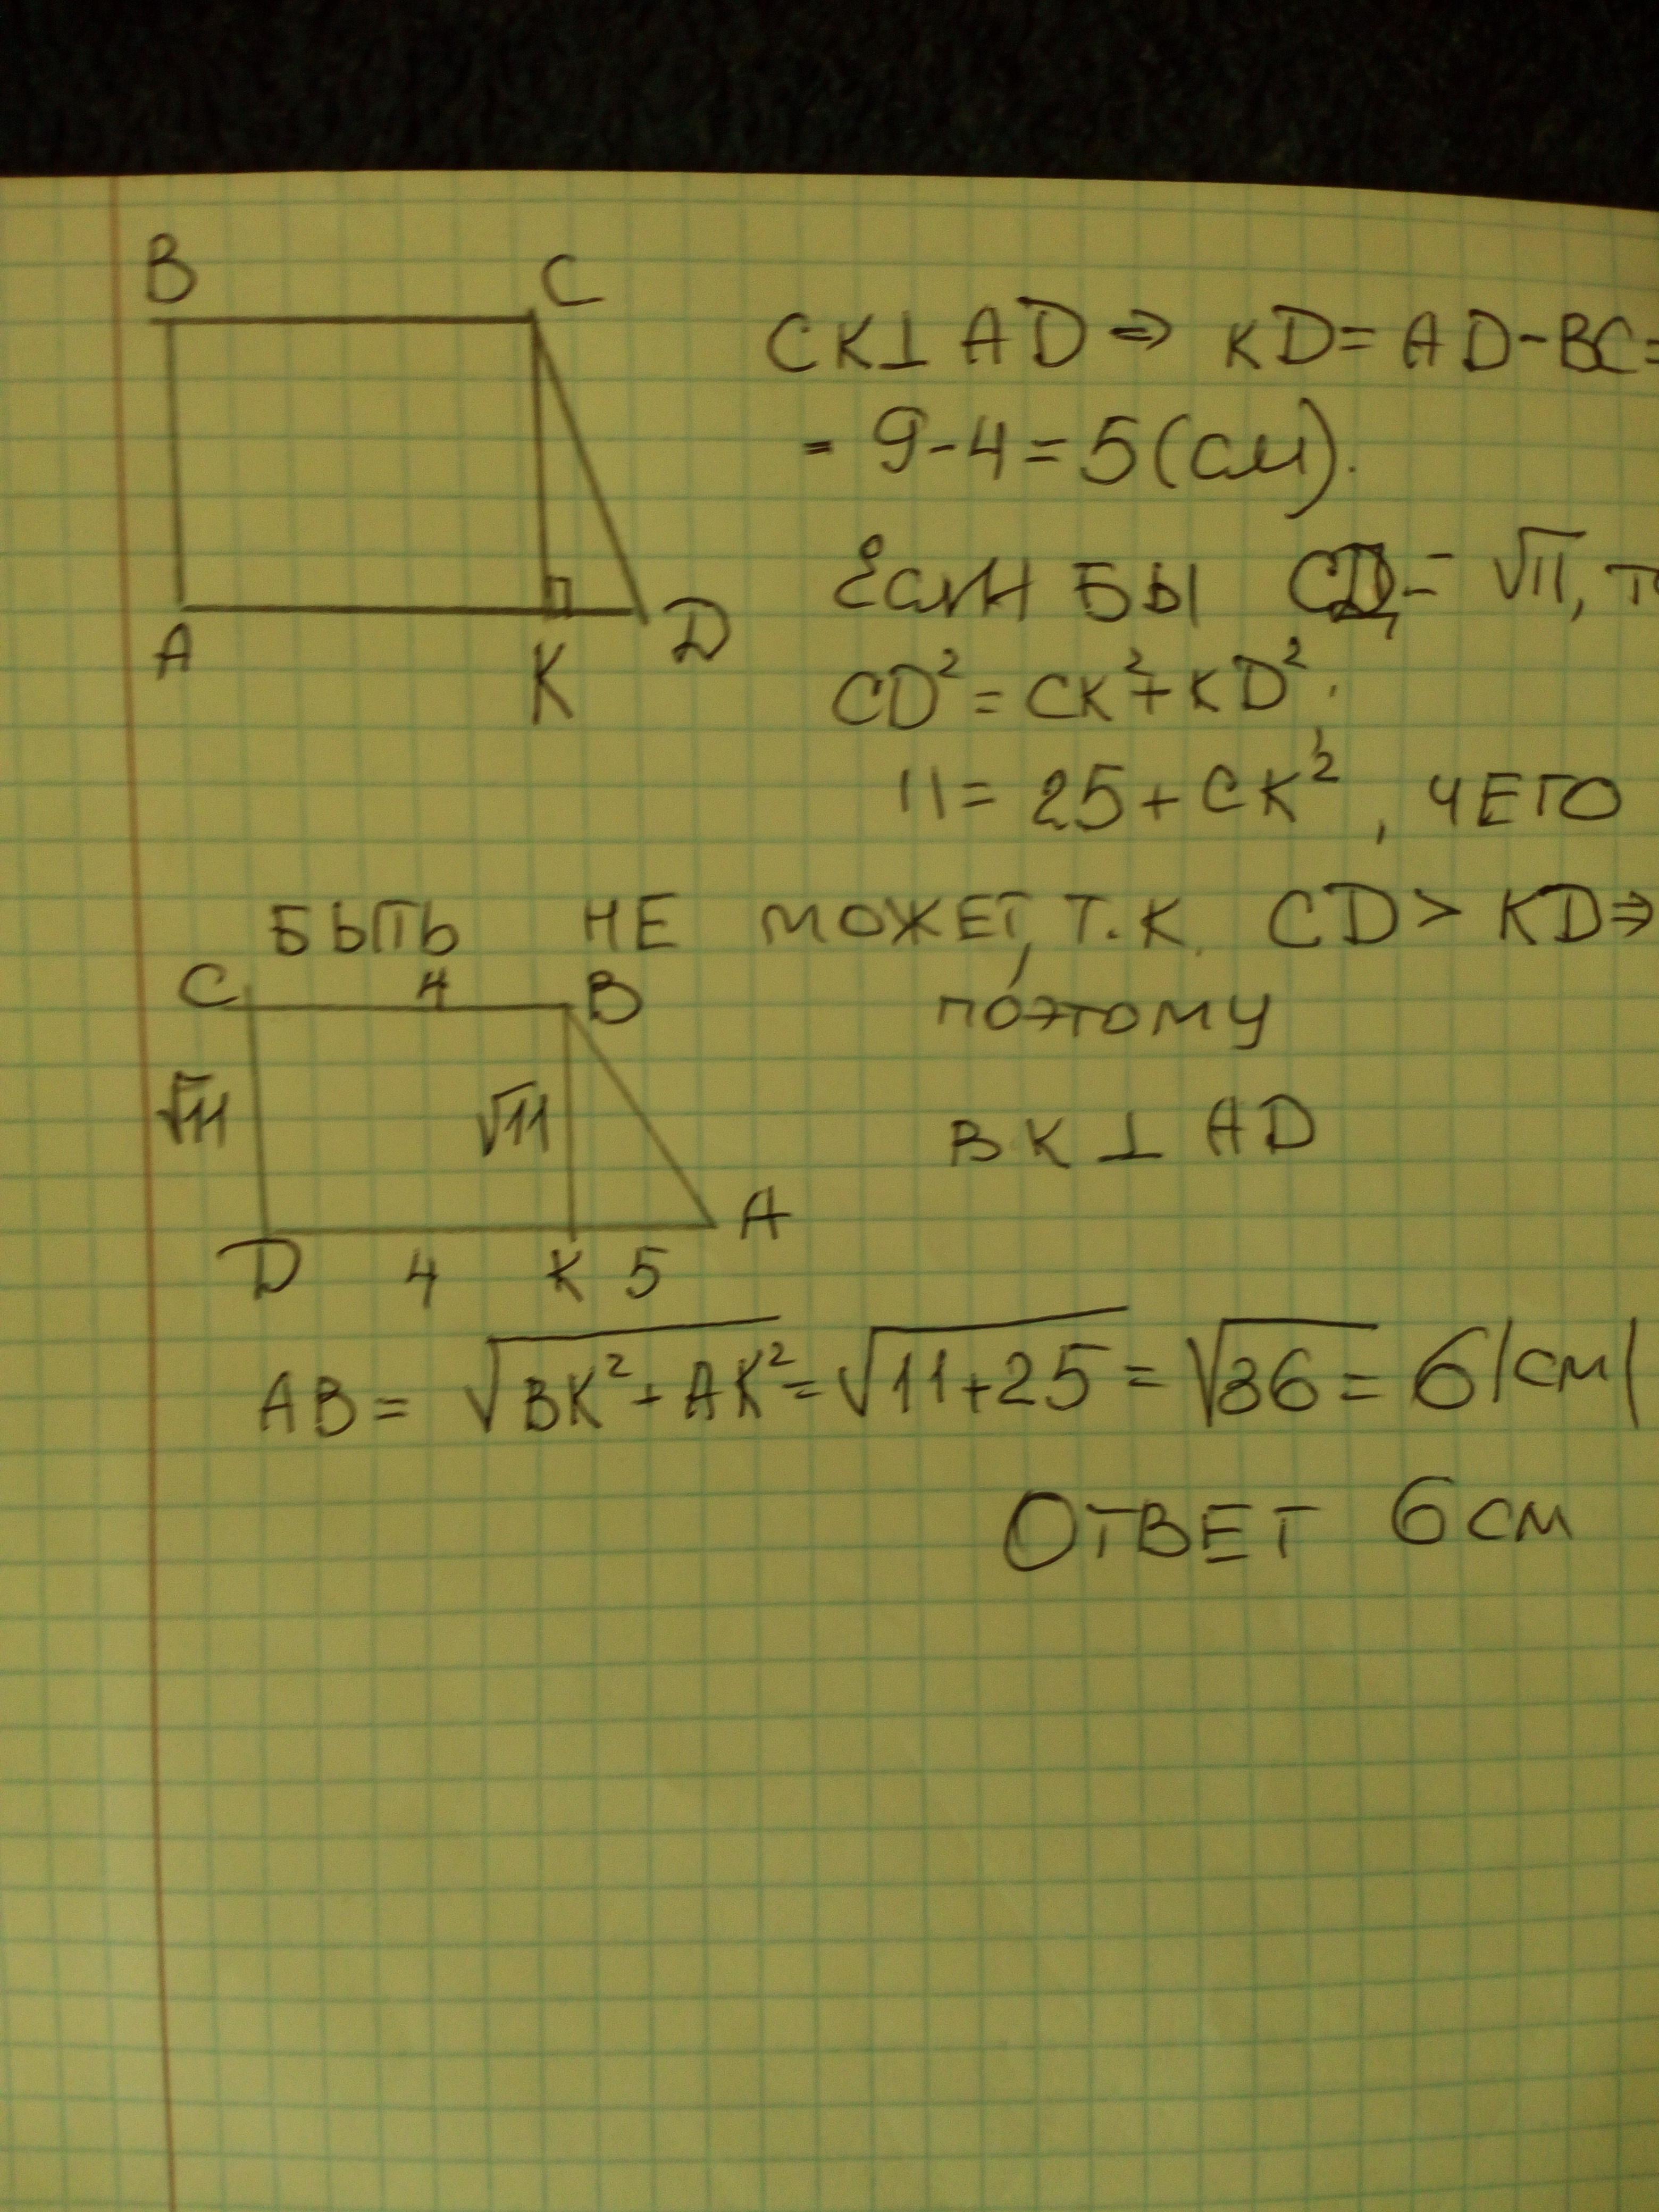 B C
CK⊥AD ⇒ KD = AD - BC =
= 9 - 4 = 5 (см).
Если бы CD = √11, т
A K D
CD² = CK² + KD²;
11 = 25 + CK², ЧЕГО
БЫТЬ НЕ МОЖЕТ, Т.К. CD > KD ⇒
C 4 B
поэтому
√11 √11
BK ⊥ AD
D 4 K 5 A
AB = √BK² + AK² = √11+25 = √36 = 6 (см)
ОТВЕТ 6 см